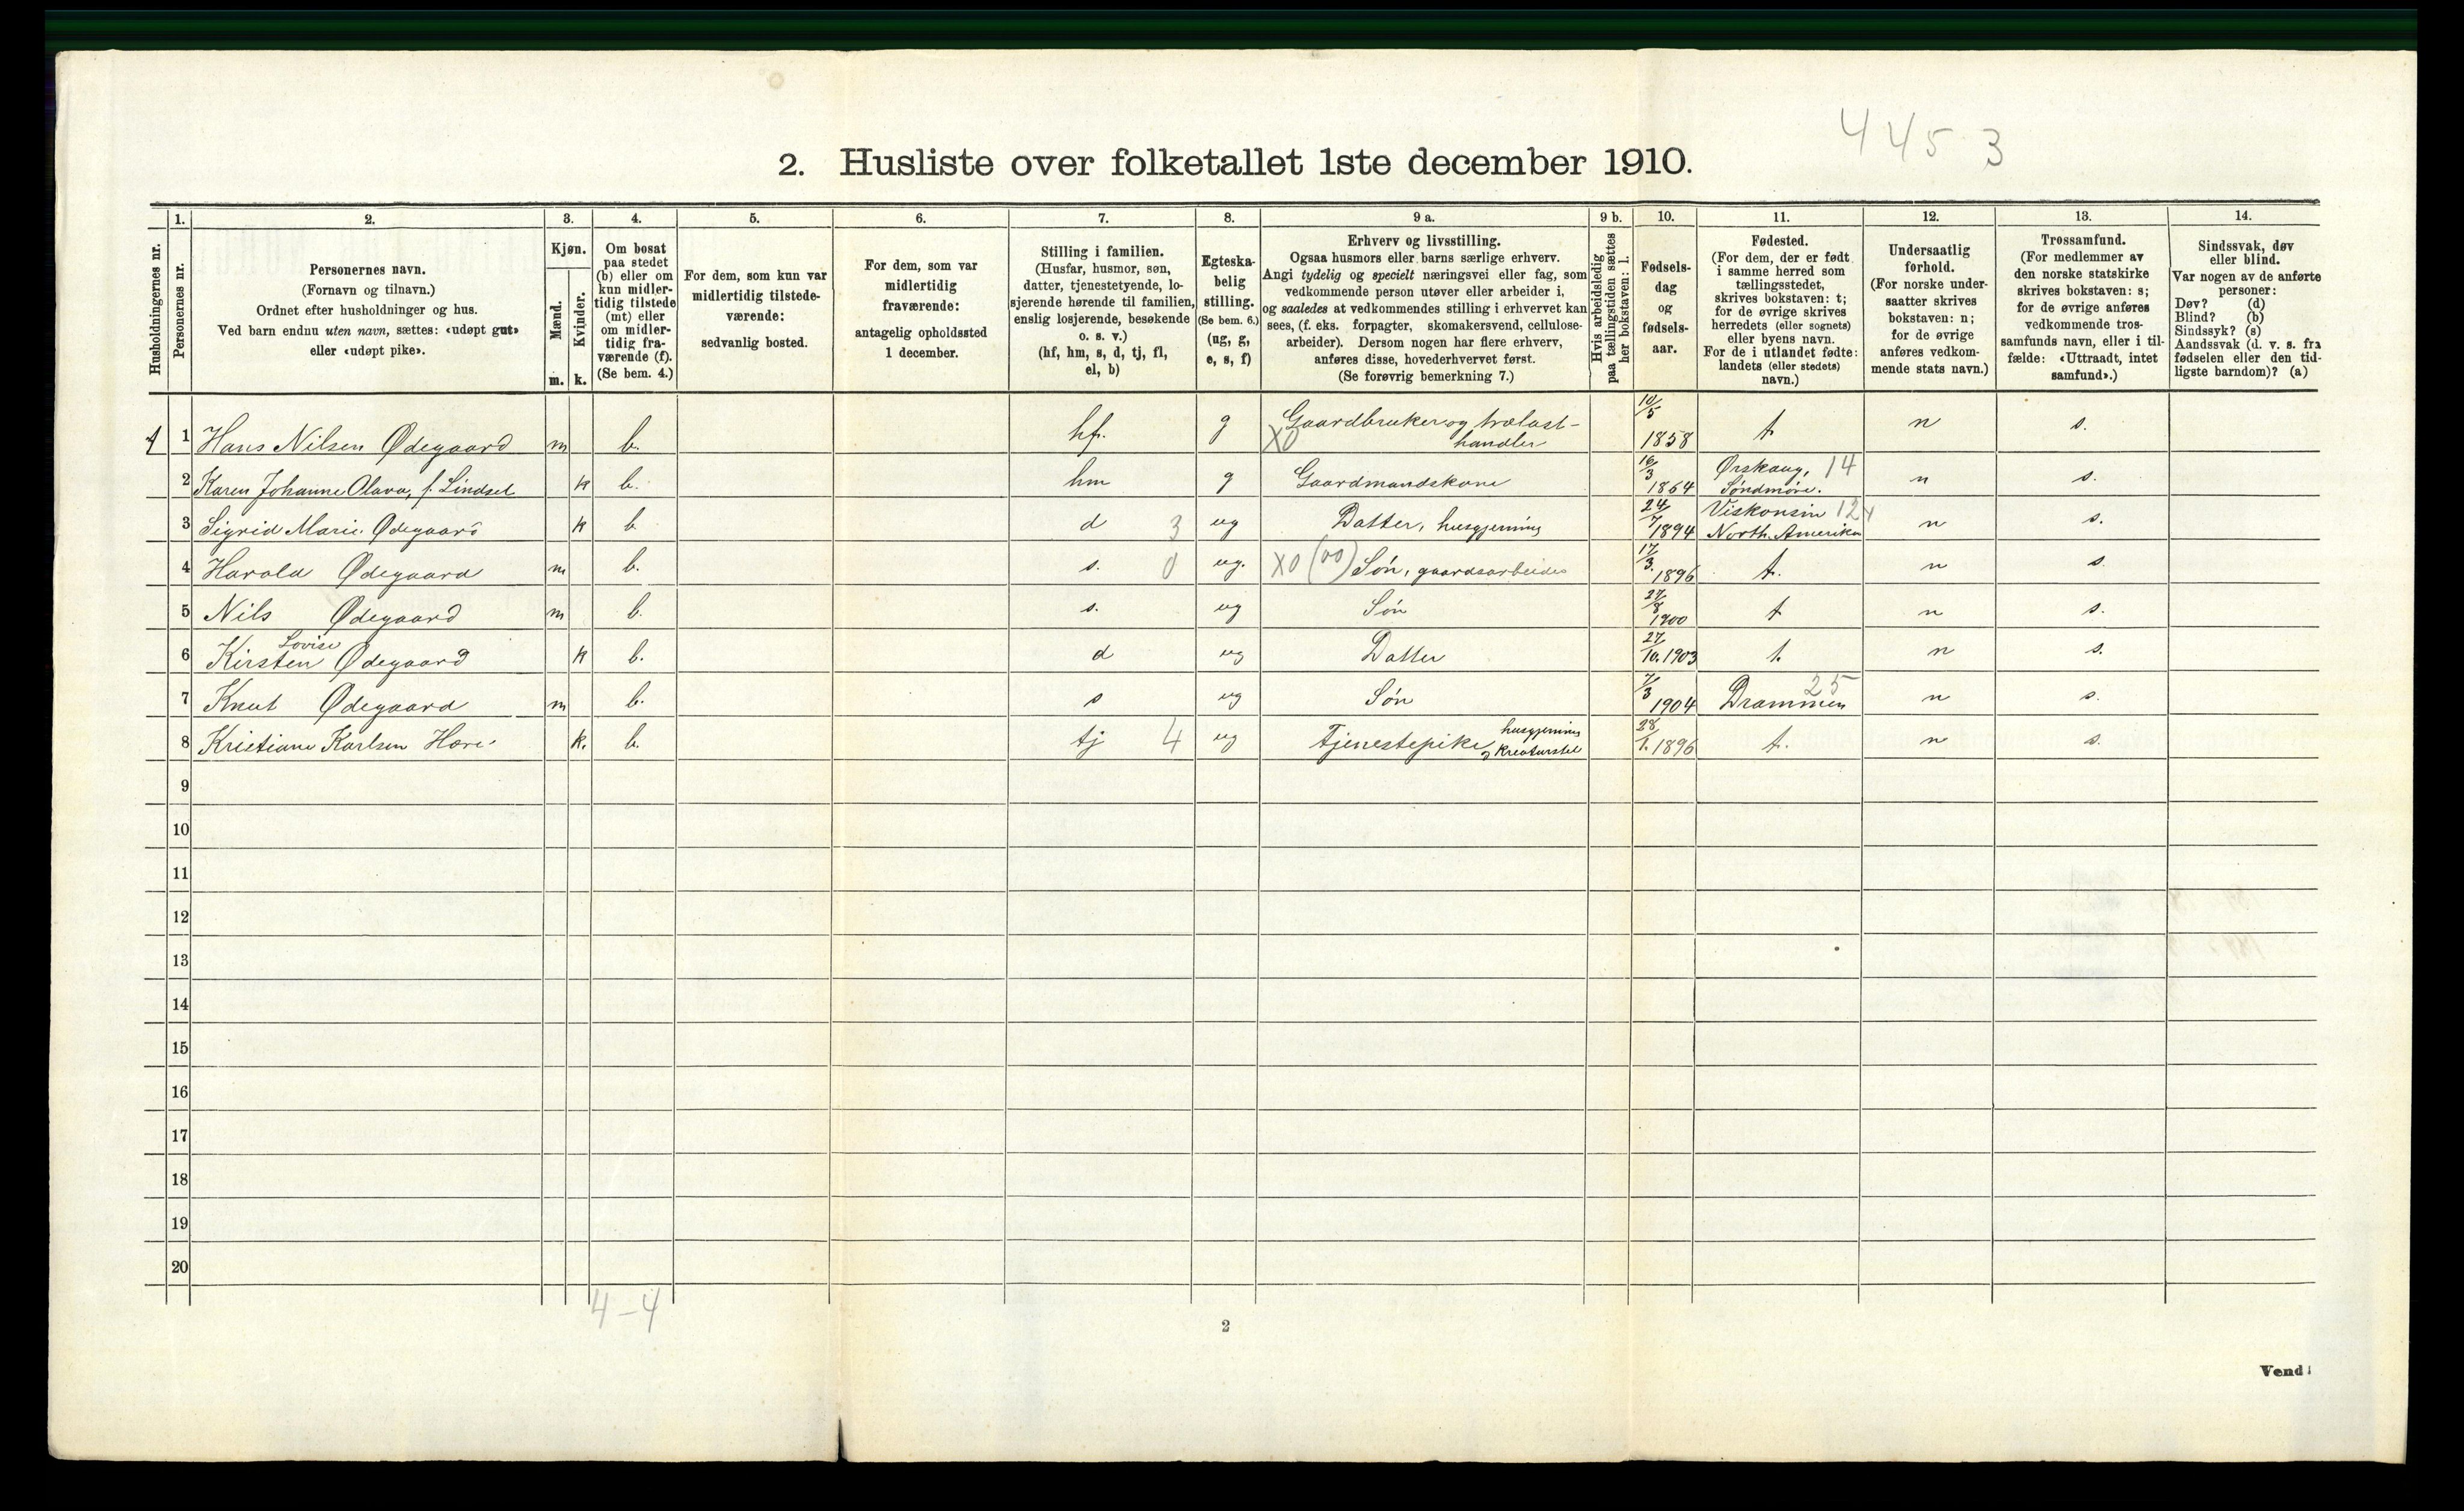 445 3
2. Husliste over folketallet 1ste december 1910.
1. 2. 3. 4. 5. 6. 7. 8. 9 a. 9 b. 10. 11. 12. 13. 14.
Husholdningernes nr.
Personernes nr.
Personernes navn.
(Fornavn og tilnavn.)
Ordnet efter husholdninger og hus.
Ved barn endnu uten navn, sættes: «udøpt gut»
eller «udøpt pike».
Kjøn.
Mænd.
Kvinder.
m. k.
Om bosat
paa stedet
(b) eller om
kun midler-
tidig tilstede
(mt) eller
om midler-
tidig fra-
værende (f).
(Se bem. 4.)
For dem, som kun var
midlertidig tilstede-
værende:
sedvanlig bosted.
For dem, som var
midlertidig
fraværende:
antagelig opholdssted
1 december.
Stilling i familien.
(Husfar, husmor, søn,
datter, tjenestetyende, lo-
sjerende hørende til familien,
enslig losjerende, besøkende
o. s. v.)
(hf, hm, s, d, tj, fl,
el, b)
Egteska-
belig
stilling.
(Se bem. 6.)
(ug, g,
e, s, f)
Erhverv og livsstilling.
Ogsaa husmors eller barns særlige erhverv.
Angi tydelig og specielt næringsvei eller fag, som
vedkommende person utøver eller arbeider i,
og saaledes at vedkommendes stilling i erhvervet kan
sees, (f. eks. forpagter, skomakersvend, cellulose-
arbeider). Dersom nogen har flere erhverv,
anføres disse, hovederhvervet først.
(Se forøvrig bemerkning 7.)
Hvis arbeidsledig
paa tællingstiden sættes
her bokstaven: l.
Fødsels-
dag
og
fødsels-
aar.
Fødested.
(For dem, der er født
i samme herred som
tællingsstedet,
skrives bokstaven: t;
for de øvrige skrives
herredets (eller sognets)
eller byens navn.
For de i utlandet fødte:
landets (eller stedets)
navn.)
Undersaatlig
forhold.
(For norske under-
saatter skrives
bokstaven: n;
for de øvrige
anføres vedkom-
mende stats navn.)
Trossamfund.
(For medlemmer av
den norske statskirke
skrives bokstaven: s;
for de øvrige anføres
vedkommende tros-
samfunds navn, eller i til-
fælde: «Uttraadt, intet
samfund».)
Sindssvak, døv
eller blind.
Var nogen av de anførte
personer:
Døv? (d)
Blind? (b)
Sindssyk? (s)
Aandssvak (d. v. s. fra
fødselen eller den tid-
ligste barndom)? (a)
1 1 Hans Nilsen Ødegaard m b. hf. g Gaardbruker og trælast- 10/5 1858 t n s.
X0 handler
2 Karen Johanne Olava, f. Lindset k b. hm g Gaardmandskone 16/3 1864 Ørskaug, 14 n s.
Søndmøre.
3 Sigrid Marie Ødegaard k b d 3 ug Datter, husgjerning 24/7 1894 Viskonsin 124 n s.
North. Amerika
4 Harald Ødegaard m b. s. 0 ug. X0 (00) Søn, gaardsarbeide 17/3. 1896 t. n s.
5 Nils Ødegaard m b. s. ug Søn 27/8 1900 t n s.
Lovise
6 Kirsten Ødegaard k b. d ug Datter 27/10. 1903 t. n s.
7 Knut Ødegaard m b. s ug Søn 7/3 1904 Drammen 25 n s.
8 Kristiane Karlsen k. b. tj 4 ug Tjenestepike, husgjerning 28/1. 1896 t. n s.
og kreaturstel
9
10
11
12
13
14
15
16
17
18
19
20
4-4
2
Vend!